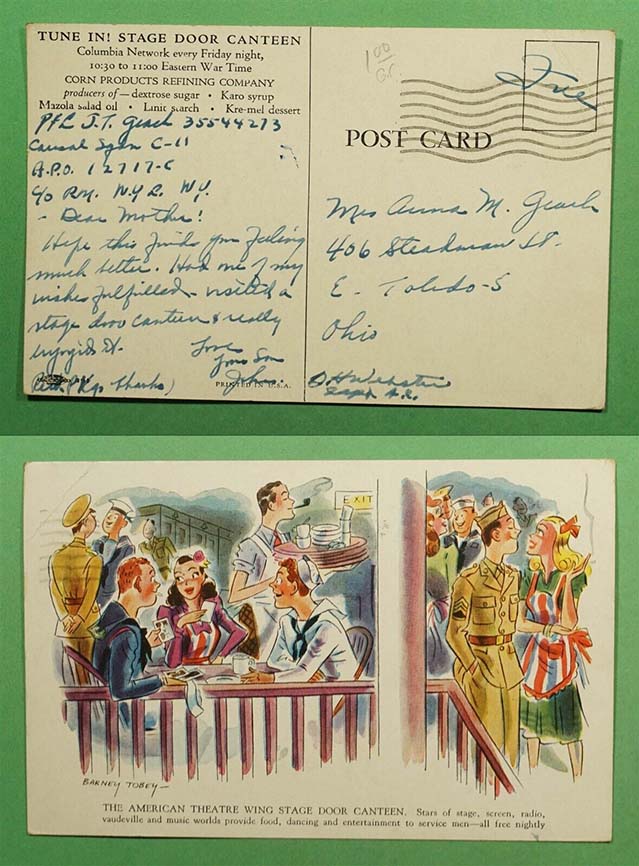 TUNE IN! STAGE DOOR CANTEEN
Columbia Network every Friday night,
10:30 to 11:00 Eastern War Time
CORN PRODUCTS REFINING COMPANY
producers of—dextrose sugar • Karo syrup
Mazola salad oil • Linit starch • Kre-mel dessert
Pfc J. T. Geach 35544273
Causal Sqdn C-11
A.P.O. 12717-C
c/o P.M. N.Y.C. N.Y.
- Dear Mother!
Hope this finds you feeling
much better. Had one of my
wishes fulfilled - visited a
stage door canteen & really
enjoyed it.
Love
Your Son
John.
thanks)
PRINTED IN U.S.A.
1.00
Free
POST CARD
Mrs Anna M. Geach
406 Steadman St.
E. Toledo-5
Ohio
Webster
Capt A.C.
EXIT
BARNEY TOBEY—
THE AMERICAN THEATRE WING STAGE DOOR CANTEEN. Stars of stage, screen, radio,
vaudeville and music worlds provide food, dancing and entertainment to service men—all free nightly